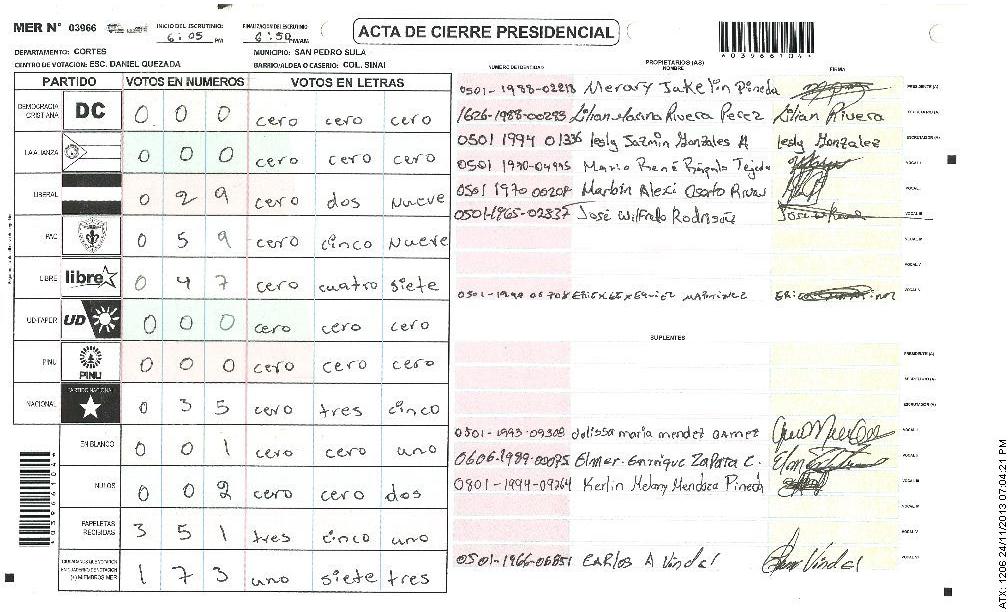 MER N° 03966
INICIO DEL ESCRUTINIO
6:05 PM
FINALIZACION DEL ESCRUTINIO
6:50 PM/AM
ACTA DE CIERRE PRESIDENCIAL
A03966104A
DEPARTAMENTO: CORTES
MUNICIPIO: SAN PEDRO SULA
CENTRO DE VOTACION: ESC. DANIEL QUEZADA
BARRIO/ALDEA O CASERIO: COL. SINAI
PARTIDO VOTOS EN NUMEROS VOTOS EN LETRAS
DEMOCRACIA CRISTIANA DC 0 0 0 cero cero cero
LA ALIANZA 0 0 0 cero cero cero
LIBERAL 0 2 9 cero dos nueve
PAC 0 5 9 cero cinco nueve
LIBRE libre 0 4 7 cero cuatro siete
UD-FAPER UD 0 0 0 cero cero cero
PINU PINU 0 0 0 cero cero cero
NACIONAL PARTIDO NACIONAL 0 3 5 cero tres cinco
EN BLANCO 0 0 1 cero cero uno
NULOS 0 0 2 cero cero dos
PAPELETAS RECIBIDAS 3 5 1 tres cinco uno
1 7 3 uno siete tres
NUMERO DE IDENTIDAD PROPIETARIOS (AS) NOMBRE FIRMA
0501-1988-02213 Merary Jakelin Pineda PRESIDENTE (A)
1626-1988-00293 Lilian Rivera Perez Lilian Rivera
0501 1994 01336 lesly Jazmin Gonzales A lesly Gonzalez ESCRUTADOR (A)
0501 1970-04995 Mario René Tejeda VOCAL I
0501 1970 00208 Marbin Alexi VOCAL II
0501-1965-02837 José Wilfredo VOCAL III
VOCAL IV
VOCAL V
MARTINEZ
SUPLENTES
PRESIDENTE (A)
SECRETARIO (A)
ESCRUTADOR (A)
0501-1993-09308 maria mendez VOCAL I
0606-1989-00075 Elmer Enrrique Zapata C. VOCAL II
0801-1994-09264 Kerlin Melany Mendoza Pineda VOCAL III
VOCAL IV
VOCAL V
0501-1966-06851 CARLOS A Vindel Vindel VOCAL VI
ATX: 1206 24/11/2013 07:04:21 PM